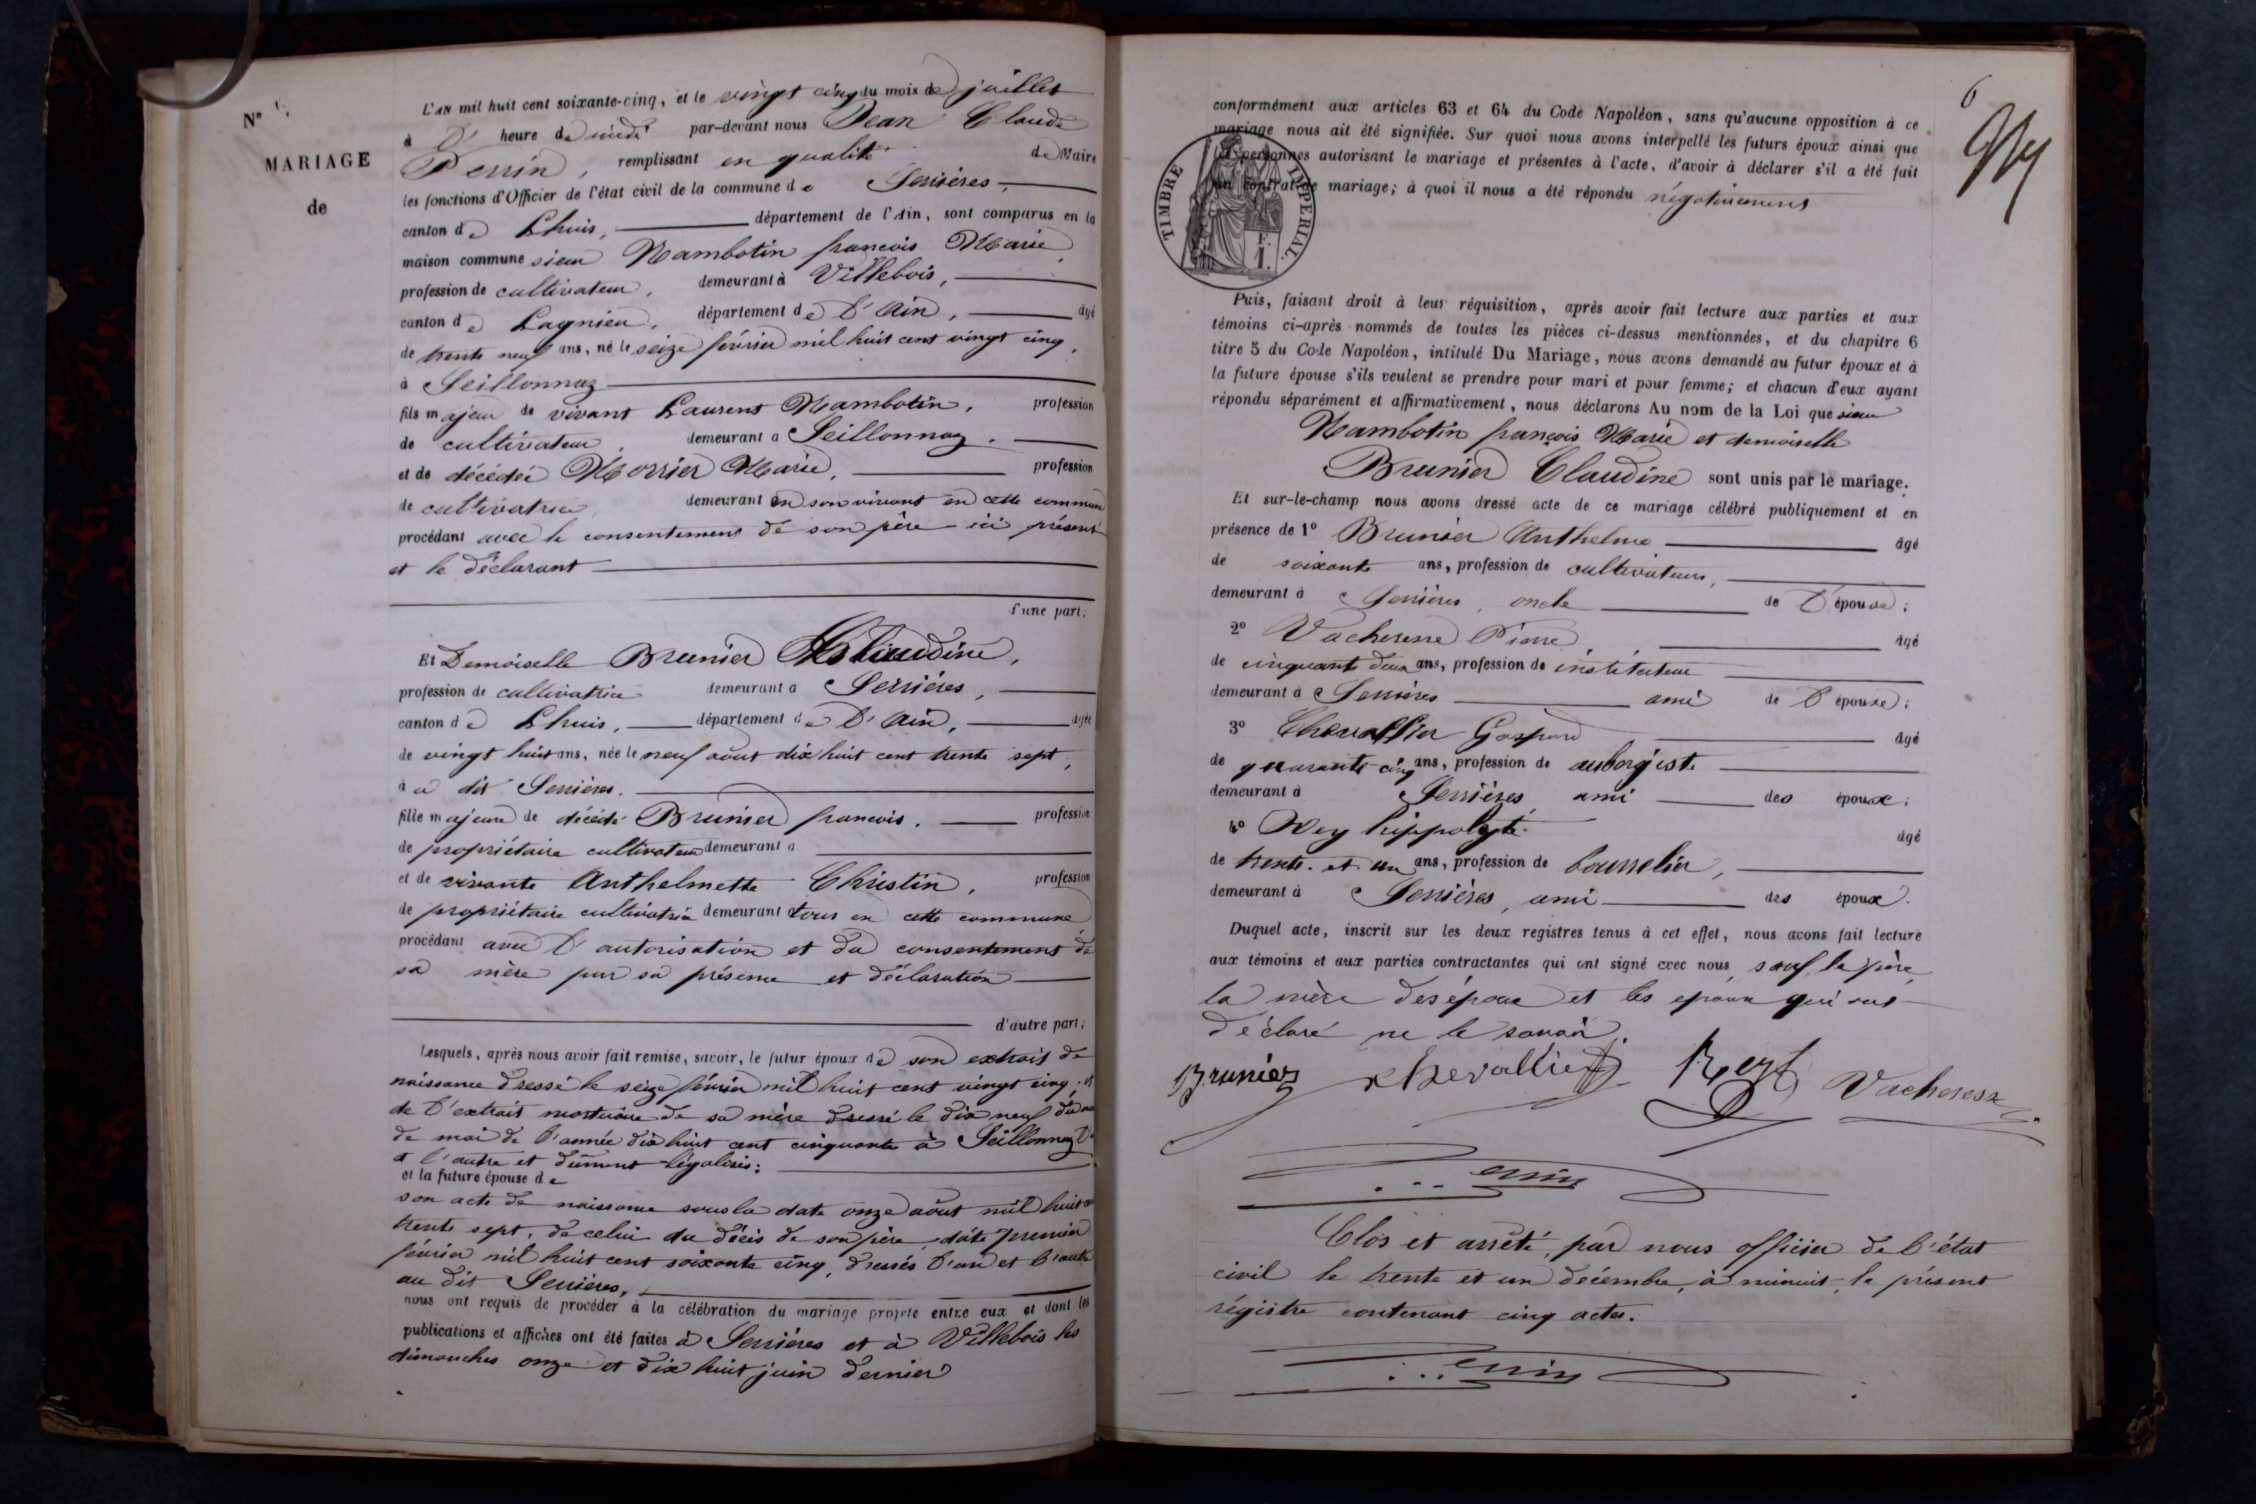 N°
MARIAGE
de
L'AN mil huit cent soixante-cinq, et le vingt cinq du mois de juillet
à l' heure de midi par-devant nous Jean Claude
Perrin, remplissant en qualité de Maire
les fonctions d'Officier de l'état civil de la commune de Serrières,
canton de Lhuis, département de l'Ain, sont comparus en la
maison commune sieur Mambotin françois Marie,
profession de cultivateur, demeurant à Villebois,
canton de Lagnieu, département de l'Ain, âgé
de trente neuf ans, né le seize février mil huit cent vingt cinq,
à Seillonnaz
fils majeur de vivant Laurent Mambotin, profession
de cultivateur, demeurant à Seillonnaz.
et de décédée Morrier Marie, profession
de cultivatrice demeurant en son vivant en cette commune
procédant avec le consentement de son père ici présent
et le déclarant
d'une part;
Et Demoiselle Brunier Claudine,
profession de cultivatrice demeurant à Serrières,
canton de Lhuis, département de l'Ain, âgée
de vingt huit ans, née le neuf août dix huit cent trente sept,
à a dit Serrières.
fille majeure de décédé Brunier francois. profession
de propriétaire cultivateur demeurant à
et de vivante Anthelmette Christin, profession
de propriétaire cultivatrice demeurant tous en cette commune
procédant avec l'autorisation et du consentement de
sa mère par sa présence et déclaration
d'autre part;
Lesquels, après nous avoir fait remise, savoir, le futur époux de son extrait de
naissance dressé le seize février mil huit cent vingt cinq, et
de l'extrait mortuaire de sa mère dressé le dix neuf du
de mai de l'année dix huit cent cinquante à Seillonnaz l'
et l'autre et dûment légalisés;
et la future épouse de
son acte de naissance sous la date onze août mil huit
trente sept, de celui du décès de son père, daté premier
février mil huit cent soixante cinq, dressés l'un et l'autre
au dit Serrières,
nous ont requis de procéder à la célébration du mariage projeté entre eux et dont les
publications et affiches ont été faites à Serrières et à Villebois les
dimanches onze et dix huit juin dernier
6
conformément aux articles 63 et 64 du Code Napoléon, sans qu'aucune opposition à ce
mariage nous ait été signifiée. Sur quoi nous avons interpellé les futurs époux ainsi que
les personnes autorisant le mariage et présentes à l'acte, d'avoir à déclarer s'il a été fait
un contrat de mariage; à quoi il nous a été répondu négativement
TIMBRE IMPERIAL.
1 F.
Puis, faisant droit à leur réquisition, après avoir fait lecture aux parties et aux
témoins ci-après nommés de toutes les pièces ci-dessus mentionnées, et du chapitre 6
titre 5 du Code Napoléon, intitulé Du Mariage, nous avons demandé au futur époux et à
la future épouse s'ils veulent se prendre pour mari et pour femme; et chacun d'eux ayant
répondu séparément et affirmativement, nous déclarons Au nom de la Loi que sieur
Mambotin françois Marie et demoiselle
Brunier Claudine sont unis par le mariage.
Et sur-le-champ nous avons dressé acte de ce mariage célébré publiquement et en
présence de 1° Brunier Anthelme âgé
de soixante ans, profession de cultivateur,
demeurant à Serrières, oncle de l'épouse;
2° Vacheresse Pierre, âgé
de cinquante deux ans, profession de instituteur
demeurant à Serrières ami de l'épouse;
3° Chevallier Gaspard, âgé
de quarante cinq ans, profession de aubergiste
demeurant à Serrières, ami des époux;
4° Rey hippolyte. âgé
de trente et un ans, profession de bourrelier,
demeurant à Serrières, ami des époux.
Duquel acte, inscrit sur les deux registres tenus à cet effet, nous avons fait lecture
aux témoins et aux parties contractantes qui ont signé avec nous, sauf le père,
la mère des époux et les époux qui ont
déclaré ne le savoir.
Brunier Chevallier Rey Vacheresse
Perrin
Clos et arrêté, par nous officier de l'état
civil le trente et un décembre, à minuit, le présent
régistre contenant cinq actes.
Perrin